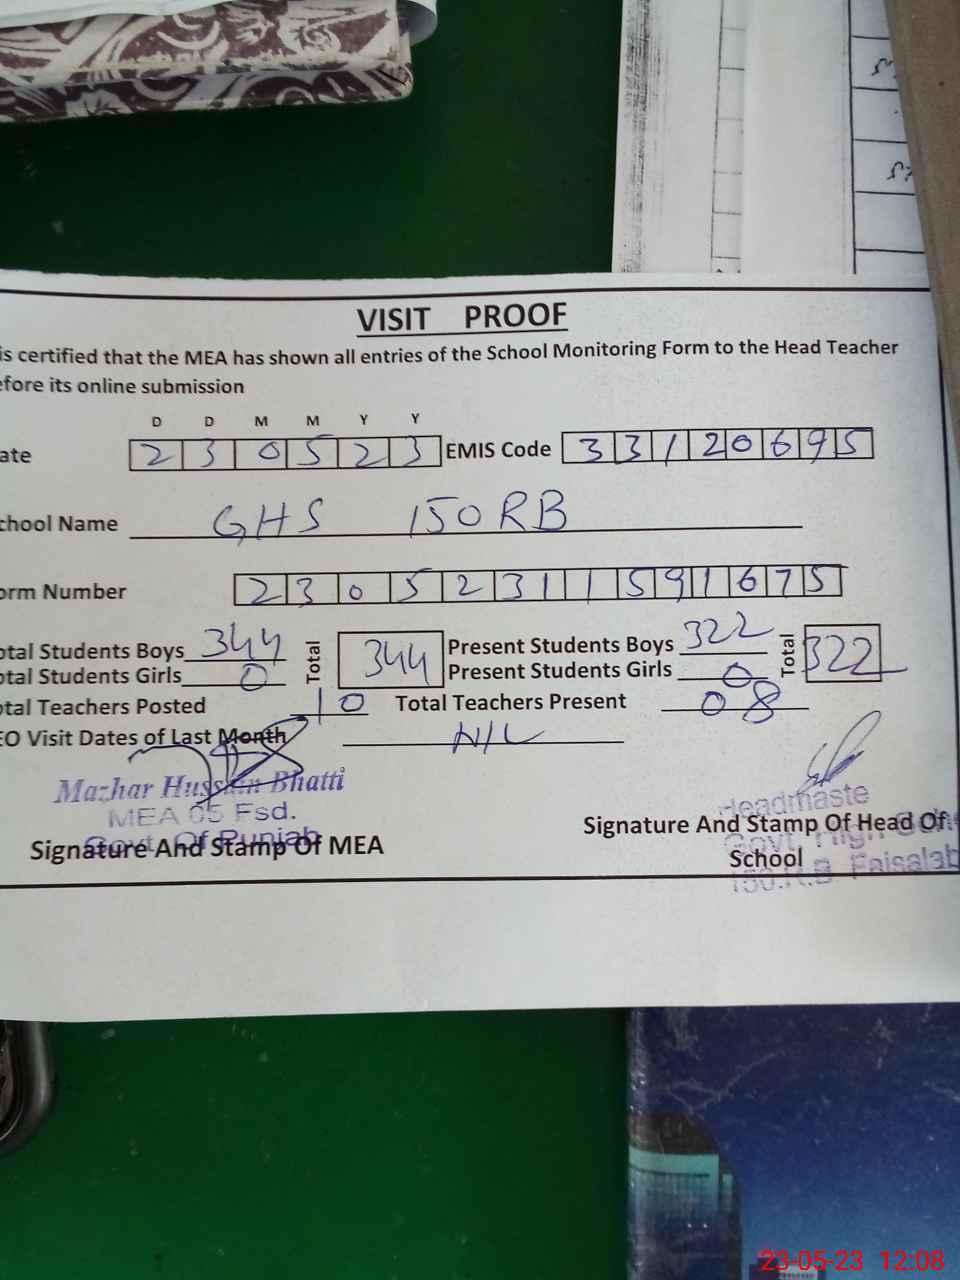 VISIT PROOF
is certified that the MEA has shown all entries of the School Monitoring Form to the Head Teacher
efore its online submission
D D M M Y Y
ate 2 3 0 5 2 3 EMIS Code 3 3 1 2 0 6 9 5
chool Name GHS 150 RB
orm Number 2 3 0 5 2 3 1 1 5 9 1 6 7 5
otal Students Boys 344 Total 344 Present Students Boys 322 Total 322
otal Students Girls 0 Present Students Girls 0
otal Teachers Posted 10 Total Teachers Present 08
EO Visit Dates of Last Month NIL
Mazhar Hussain Bhatti
MEA 65 Fsd.
Govt. Of Punjab
Signature And Stamp Of MEA
Headmaste
Signature And Stamp Of Head Of
Govt. High
School
150.R.B Faisalab
23-05-23 12:08